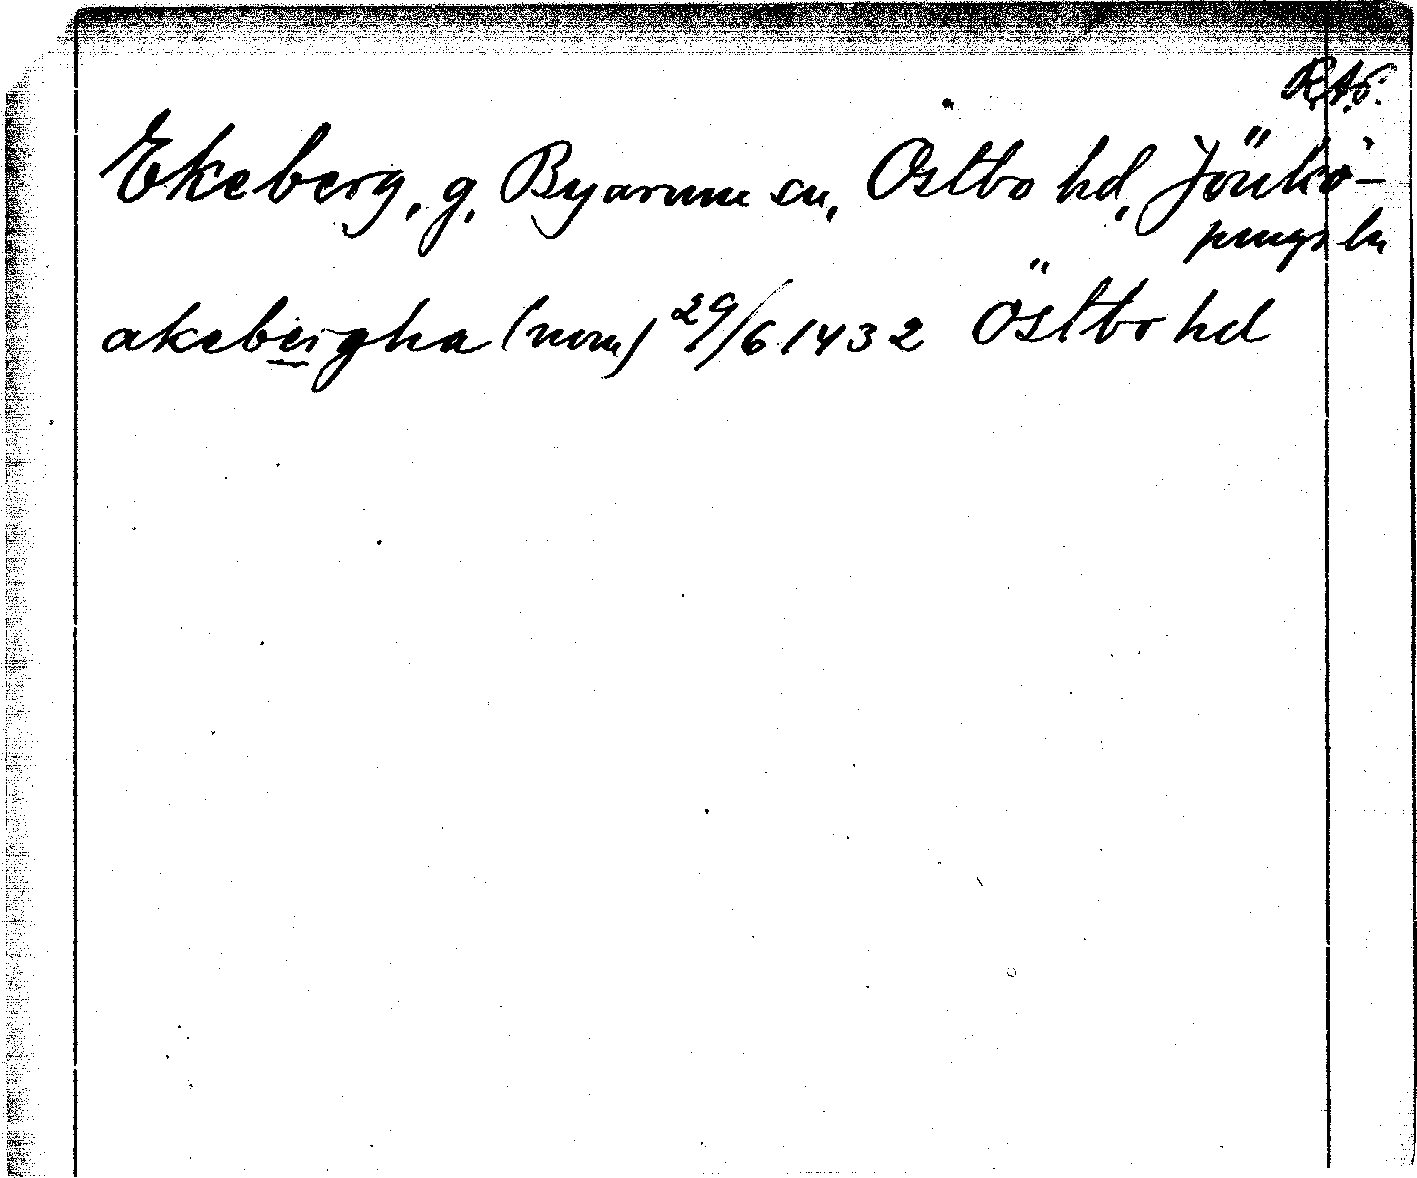 R.A.S.
Ekeberg, g, Byarum sn, Östbo hd, Jönkö-
pings ln
akebergha (nom) 29/6 1432 Östbo hd